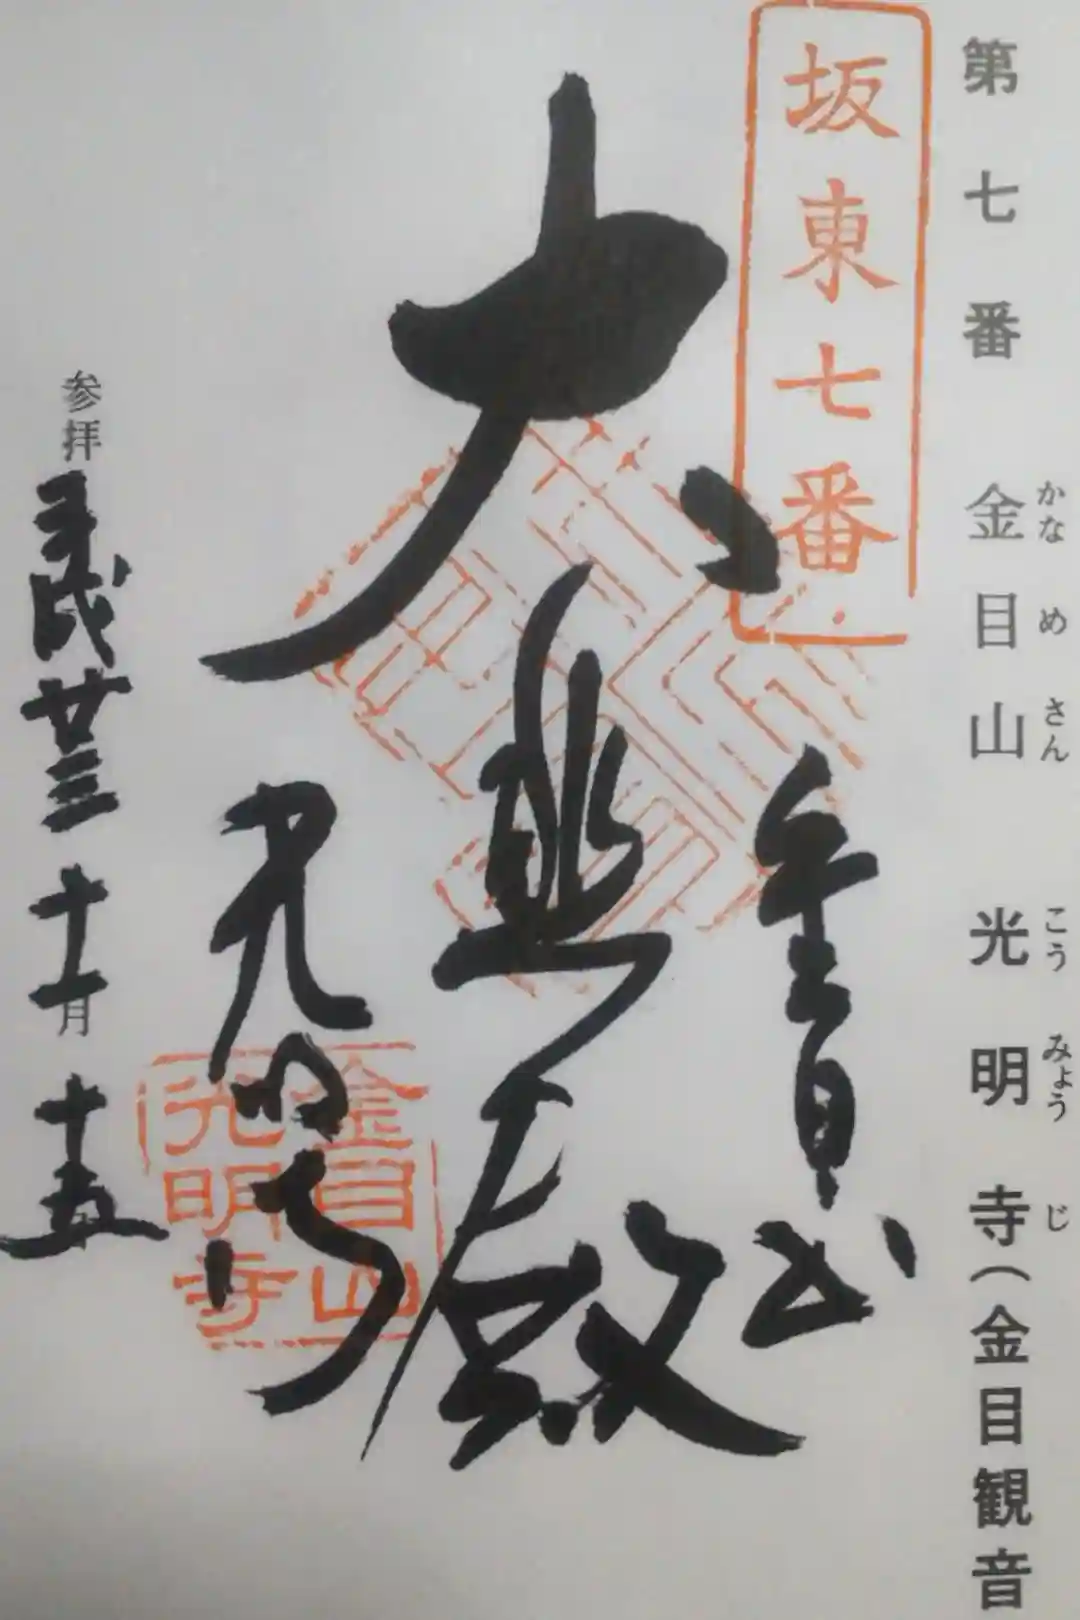 第七番 金目山 光明寺（金目観音
かなめさん こうみょうじ
坂東七番
金目山
大悲殿
光明寺
金目山
光明寺
参拝 平成廿三 十一月 十五